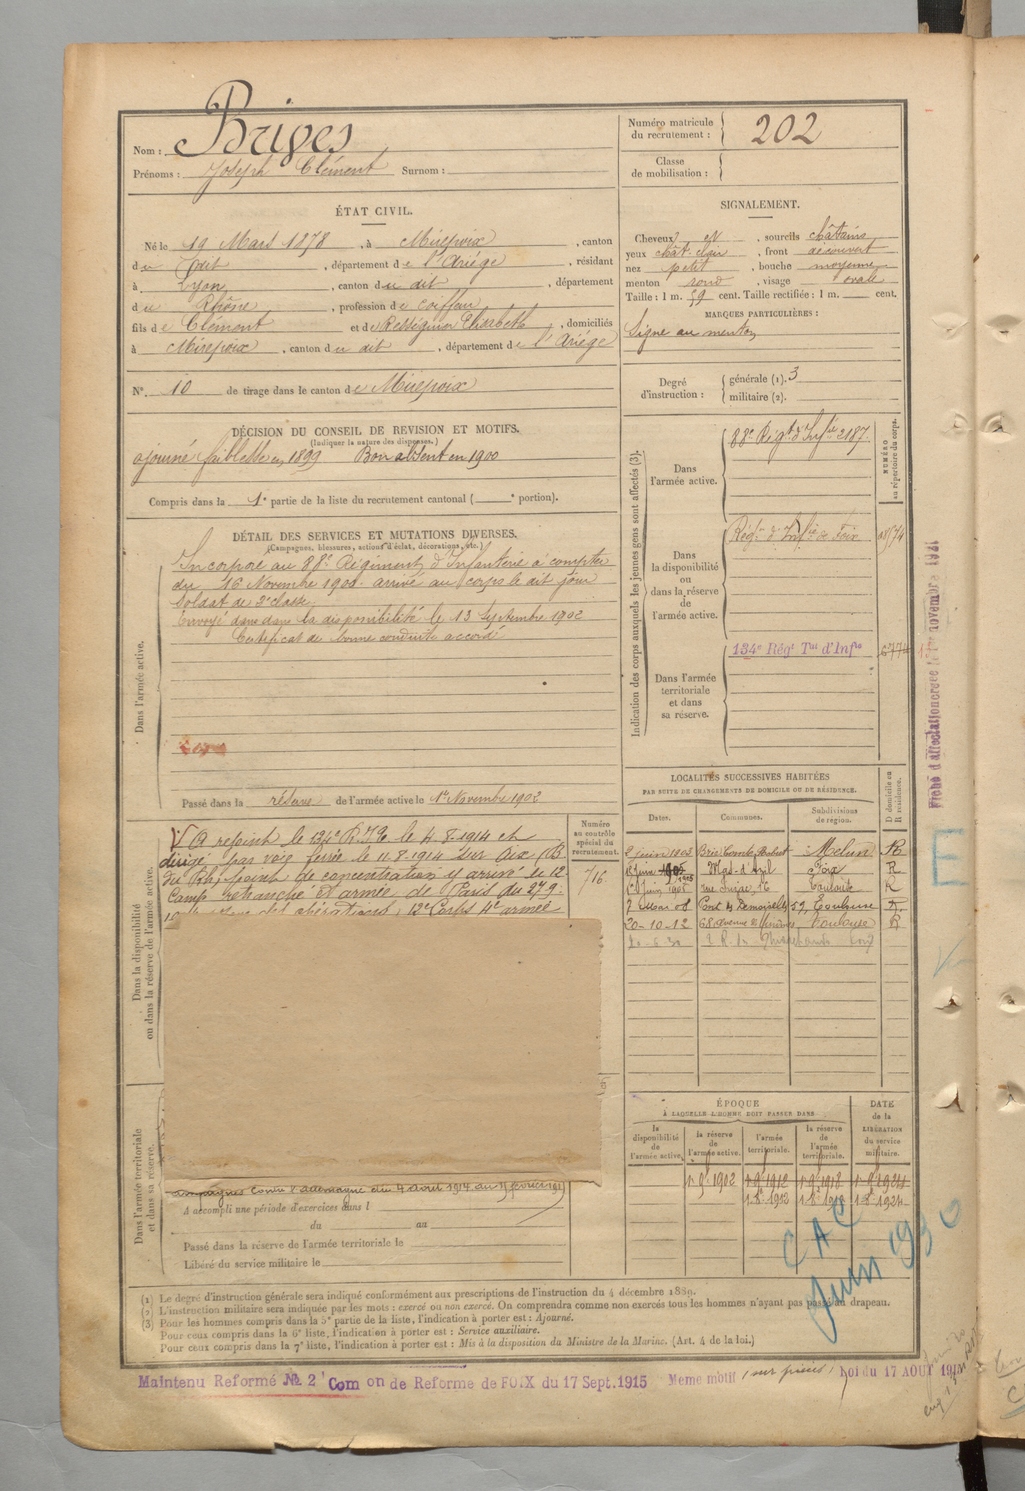 Nom : Briges
Prénoms : Joseph Clément Surnom :
Numéro matricule du recrutement : 202
Classe de mobilisation :
ÉTAT CIVIL.
Né le 19 Mars 1878, à Mirepoix, canton
du dit, département de l'Ariége, résidant
à Lyon, canton du dit, département
du Rhône, profession de coiffeur
fils de Clément et de Rességuier Elisabeth, domiciliés
à Mirepoix, canton du dit, département de l'Ariége
N° 10 de tirage dans le canton de Mirepoix
SIGNALEMENT.
Cheveux et, sourcils châtains
yeux chât. clair, front découvert
nez petit, bouche moyenne
menton rond, visage ovale
Taille : 1 m. 59 cent. Taille rectifiée : 1 m. cent.
MARQUES PARTICULIÈRES :
Signe au menton
Degré d'instruction : générale (1). 3
militaire (2).
DÉCISION DU CONSEIL DE REVISION ET MOTIFS.
(Indiquer la nature des dispenses.)
ajourné faiblesse en 1899 Bon absent en 1900
Compris dans la 1e partie de la liste du recrutement cantonal ( e portion).
DÉTAIL DES SERVICES ET MUTATIONS DIVERSES.
(Campagnes, blessures, actions d'éclat, décorations, etc.)
Dans l'armée active.
Incorporé au 88e Régiment d'Infanterie à compter
du 16 Novembre 1901 arrivé au corps le dit jour
soldat de 2e classe
Envoyé dans la disponibilité le 13 Septembre 1902
Certificat de bonne conduite accordé
Passé dans la réserve de l'armée active le 1er Novembre 1902
Indication des corps auxquels les jeunes gens sont affectés (3).
NUMÉRO au répertoire du corps.
Dans l'armée active.
88e Régt d'Infie 2187
Dans la disponibilité ou dans la réserve de l'armée active.
Régt d'Infie de Foix
Dans l'armée territoriale et dans sa réserve.
134e Régt Tal d'Infie
Dans la disponibilité ou dans la réserve de l'armée active.
Numéro au contrôle spécial du recrutement.
716
V A rejoint le 134e R.I.T. le 4-8-1914 et
dirigé par voie ferrée le 11.8.1914 sur Aix (B
du Rh) point de concentration y arrivé le 12
Camp retranché et armée de Paris du 27 9
des opérations, 12e Corps 4e armée
LOCALITÉS SUCCESSIVES HABITÉES
PAR SUITE DE CHANGEMENTS DE DOMICILE OU DE RÉSIDENCE.
Dates. Communes. Subdivisions de région. D domicile ou R résidence.
2 juin 1903 Brie Comte Robert Melun R
Juin 1905 Mas-d'Azil Foix R
Juin 1905 16 Toulouse R
7 Mai 08 Pont des Demoiselles 59, Toulouse R.
20-10-12 68 avenue Toulouse R
ÉPOQUE
À LAQUELLE L'HOMME DOIT PASSER DANS
DATE de la LIBÉRATION du service militaire.
la disponibilité de l'armée active. la réserve de l'armée active. l'armée territoriale. la réserve de l'armée territoriale.
1-9bre 1902 1-9bre 1912 1-9bre 1918 1-9bre 1924
1-8bre 1912 1-8bre 1918 1-8bre 1924
Dans l'armée territoriale et dans sa réserve.
Campagnes contre l'Allemagne du 4 Août 1914 au
A accompli une période d'exercices dans l
du au
Passé dans la réserve de l'armée territoriale le
Libéré du service militaire le
CAC
Juin 1930
(1) Le degré d'instruction générale sera indiqué conformément aux prescriptions de l'instruction du 4 décembre 1889.
(2) L'instruction militaire sera indiquée par les mots : exercé ou non exercé. On comprendra comme non exercés tous les hommes n'ayant pas passé au drapeau.
(3) Pour les hommes compris dans la 5e partie de la liste, l'indication à porter est : Ajourné.
Pour ceux compris dans la 6e liste, l'indication à porter est : Service auxiliaire.
Pour ceux compris dans la 7e liste, l'indication à porter est : Mis à la disposition du Ministre de la Marine. (Art. 4 de la loi.)
Maintenu Reformé № 2 Com on de Reforme de FOIX du 17 Sept. 1915 Meme motif (sur pièces) Loi du 17 AOUT 1915
Fiche d'affectation novembre 1921